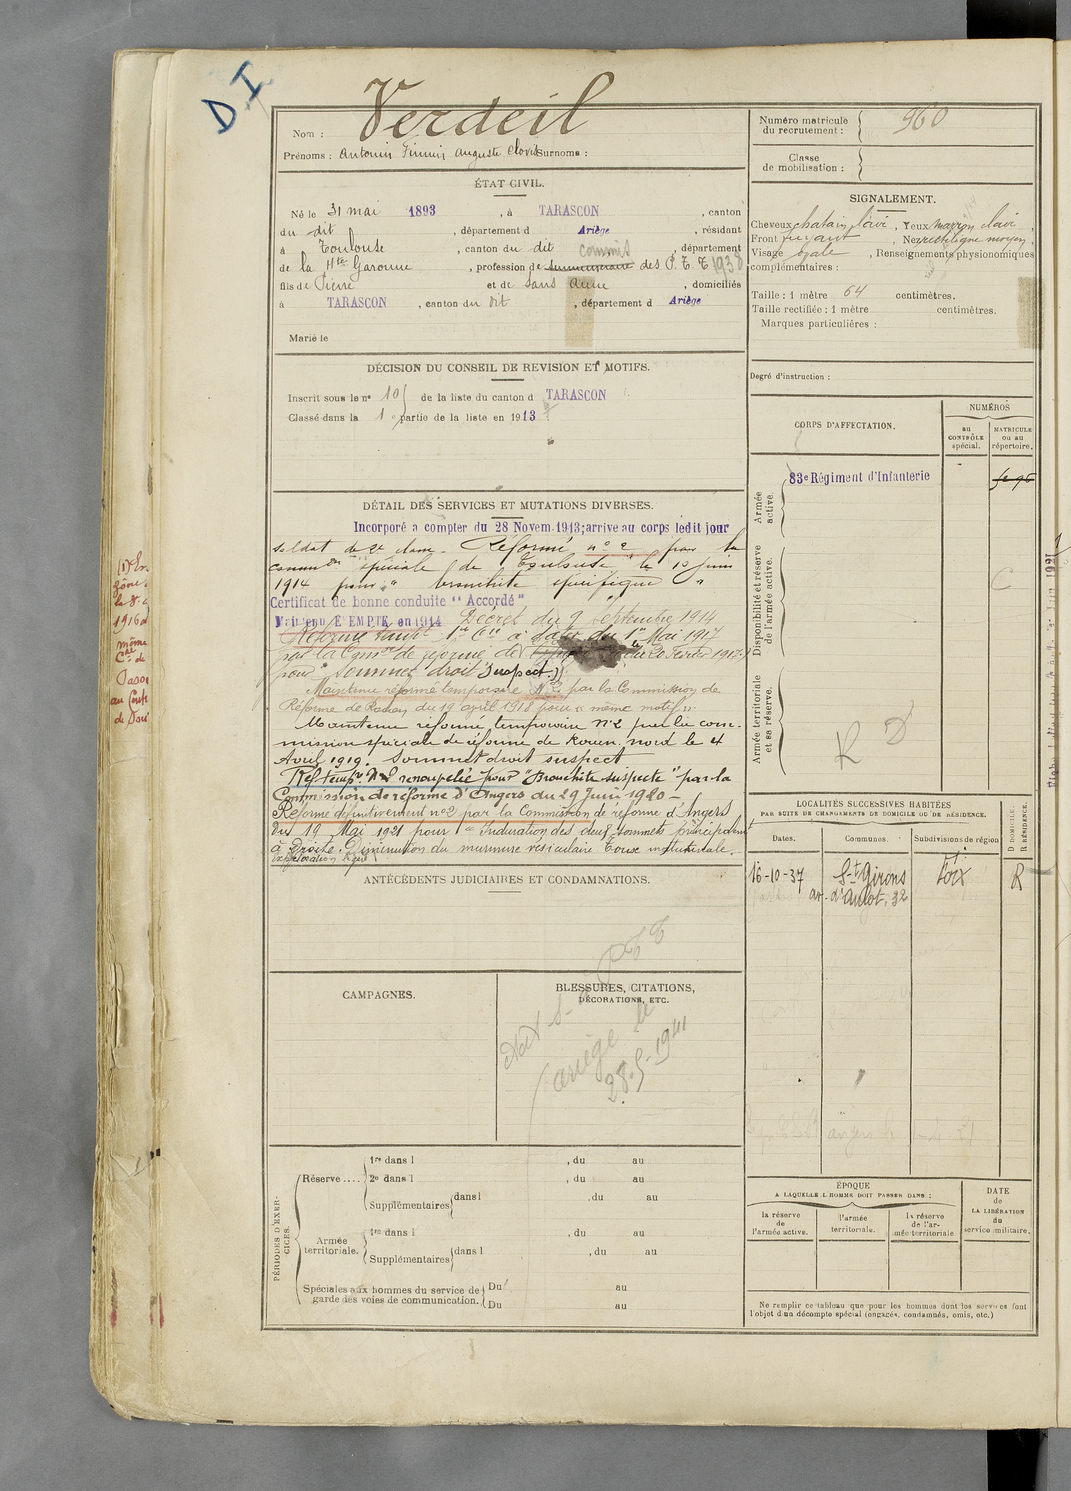 D I
Nom : Verdeil
Prénoms : Antonin Firmin Auguste Clovis Surnoms :
Numéro matricule du recrutement : 960
Classe de mobilisation :
ÉTAT CIVIL.
Né le 31 mai 1893, à TARASCON, canton
du dit, département d Ariège, résidant
à Toulouse, canton du dit, département
de la Hte Garonne, profession de surnuméraire commis des P. T. T. 1938
fils de Pierre et de Sans Anne, domiciliés
à TARASCON, canton du dit, département d Ariège
Marié le
SIGNALEMENT.
Cheveux chatain clair, Yeux marron clair,
Front fuyant, Nez rectiligne moyen
Visage ovale, Renseignements physionomiques
complémentaires :
Taille : 1 mètre 64 centimètres.
Taille rectifiée : 1 mètre centimètres.
Marques particulières :
Degré d'instruction :
DÉCISION DU CONSEIL DE REVISION ET MOTIFS.
Inscrit sous le n° 10 de la liste du canton d TARASCON
Classé dans la 1e partie de la liste en 1913
CORPS D'AFFECTATION.
NUMÉROS
au CONTRÔLE spécial.
MATRICULE ou au répertoire.
Armée active.
83e Régiment d'Infanterie
Disponibilité et réserve de l'armée active.
C
Armée territoriale et sa réserve.
R D
DÉTAIL DES SERVICES ET MUTATIONS DIVERSES.
Incorporé à compter du 28 Novem. 1913; arrive au corps ledit jour
soldat de 2e classe. Réformé n° 2 par la
comm on spéciale de Toulouse le 10 juin
1914 pour " bronchite spécifique "
Certificat de bonne conduite " Accordé "
Maintenu EXEMPTE en 1914 Décret du 9 septembre 1914
Réforme tempre 1re Cie à dater du 1er Mai 1917
par la Comon de réforme de du 20 Février 1917
pour " sommet droit suspect.)
Maintenu réformé temporaire N°2 par la Commission de
Réforme de Rouen du 19 avril 1918 pour " même motif ".
Maintenu réformé temporaire n°2 par la com-
mission spéciale de réforme de Rouen nord le 4
Avril 1919. Sommet droit suspect
Réf tempre N°2 renouvelée pour "Bronchite suspecte" par la
Commission de réforme d'Angers du 29 Juin 1920 -
Réformé définitivement n°2 par la Commission de réforme d'Angers
du 19 Mai 1921 pour 1° Induration des deux sommets principalement
à droite. Diminution du murmure vésiculaire toux
LOCALITÉS SUCCESSIVES HABITÉES
PAR SUITE DE CHANGEMENTS DE DOMICILE OU DE RÉSIDENCE.
Dates.
Communes.
Subdivisions de région
D DOMICILE. R RÉSIDENCE.
16-10-37 St Girons Foix R
av. d'Aulot, 32
ANTÉCÉDENTS JUDICIAIRES ET CONDAMNATIONS.
CAMPAGNES.
BLESSURES, CITATIONS, DÉCORATIONS, ETC.
PTT
Ariège le
28-5-1941
PÉRIODES D'EXERCICES.
Réserve ....
1re dans l , du au
2e dans l , du au
Supplémentaires dans l , du au
Armée territoriale.
1re dans l , du au
Supplémentaires dans l , du au
Spéciales aux hommes du service de garde des voies de communication.
Du au
Du au
ÉPOQUE
A LAQUELLE L'HOMME DOIT PASSER DANS :
la réserve de l'armée active.
l'armée territoriale.
la réserve de l'armée territoriale
DATE de LA LIBÉRATION du service militaire.
Ne remplir ce tableau que pour les hommes dont les services font
l'objet d'un décompte spécial (engagés, condamnés, omis, etc.)